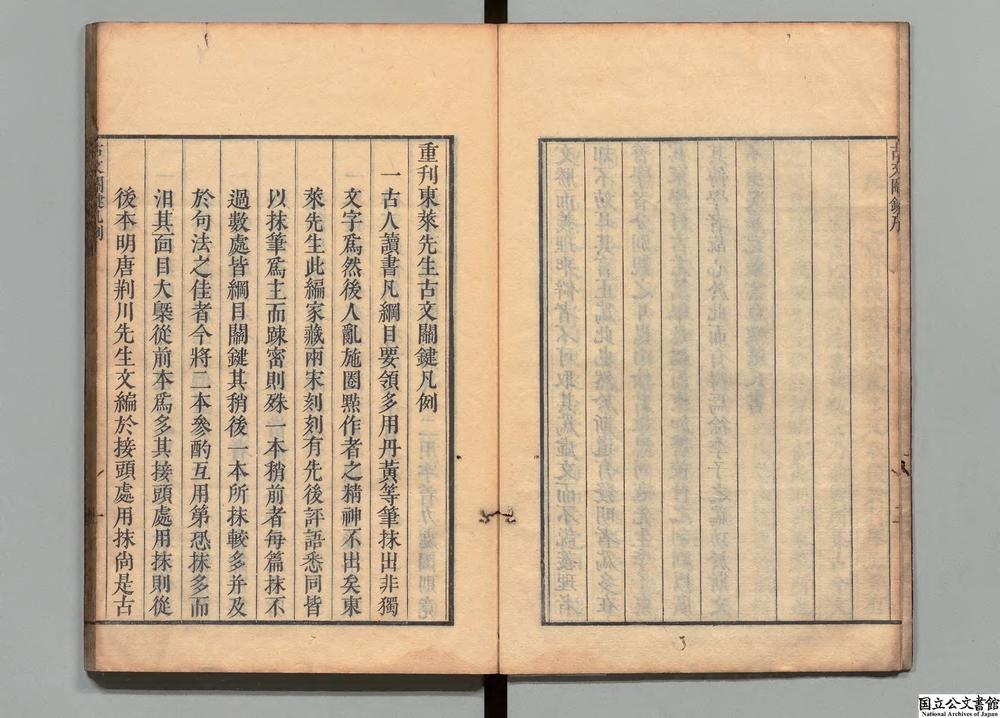 古文關鍵序
重刊東萊先生古文關鍵凡例
一古人讀書凡綱目要領多用丹黃等筆抹出非獨
文字爲然後人亂施圈㸃作者之精神不出矣東
萊先生此編家藏兩宋刻刻有先後評語悉同皆
以抹筆爲主而疎宻則殊一本稍前者每篇抹不
過數處皆綱目關鍵其稍後一本所抹較多并及
於句法之佳者今將二本參酌互用第恐抹多而
汨其面目大槩從前本爲多其接頭處用抹則從
後本明唐荆川先生文編於接頭處用抹尙是古
古文關鍵凡例
国立公文書館
National Archives of Japan